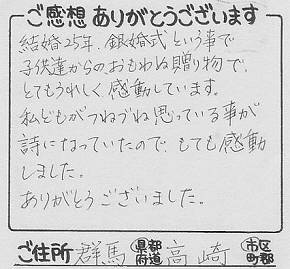 ご感想ありがとうございます
結婚25年、銀婚式という事で
子供達からのおもわぬ贈り物で、
とてもうれしく感動しています。
私どもがつねづね思っている事が
詩になっていたので、もても感動
しました。
ありがとうございました。
ご住所 群馬 県都府道 高崎 市区町郡